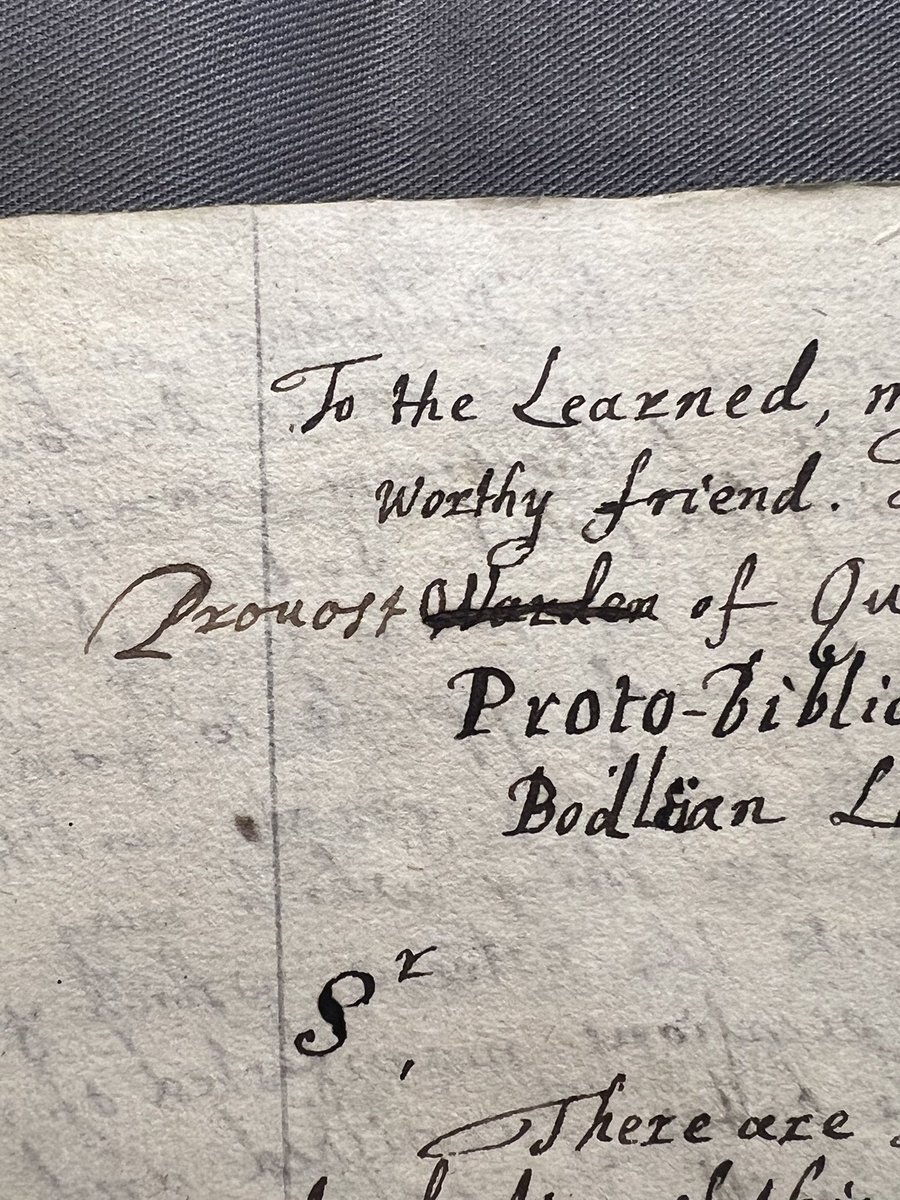 To the Learned, m
worthy friend.
Prouost Warden of Qu
Proto-biblio
Bodleian L
Sr,
There are